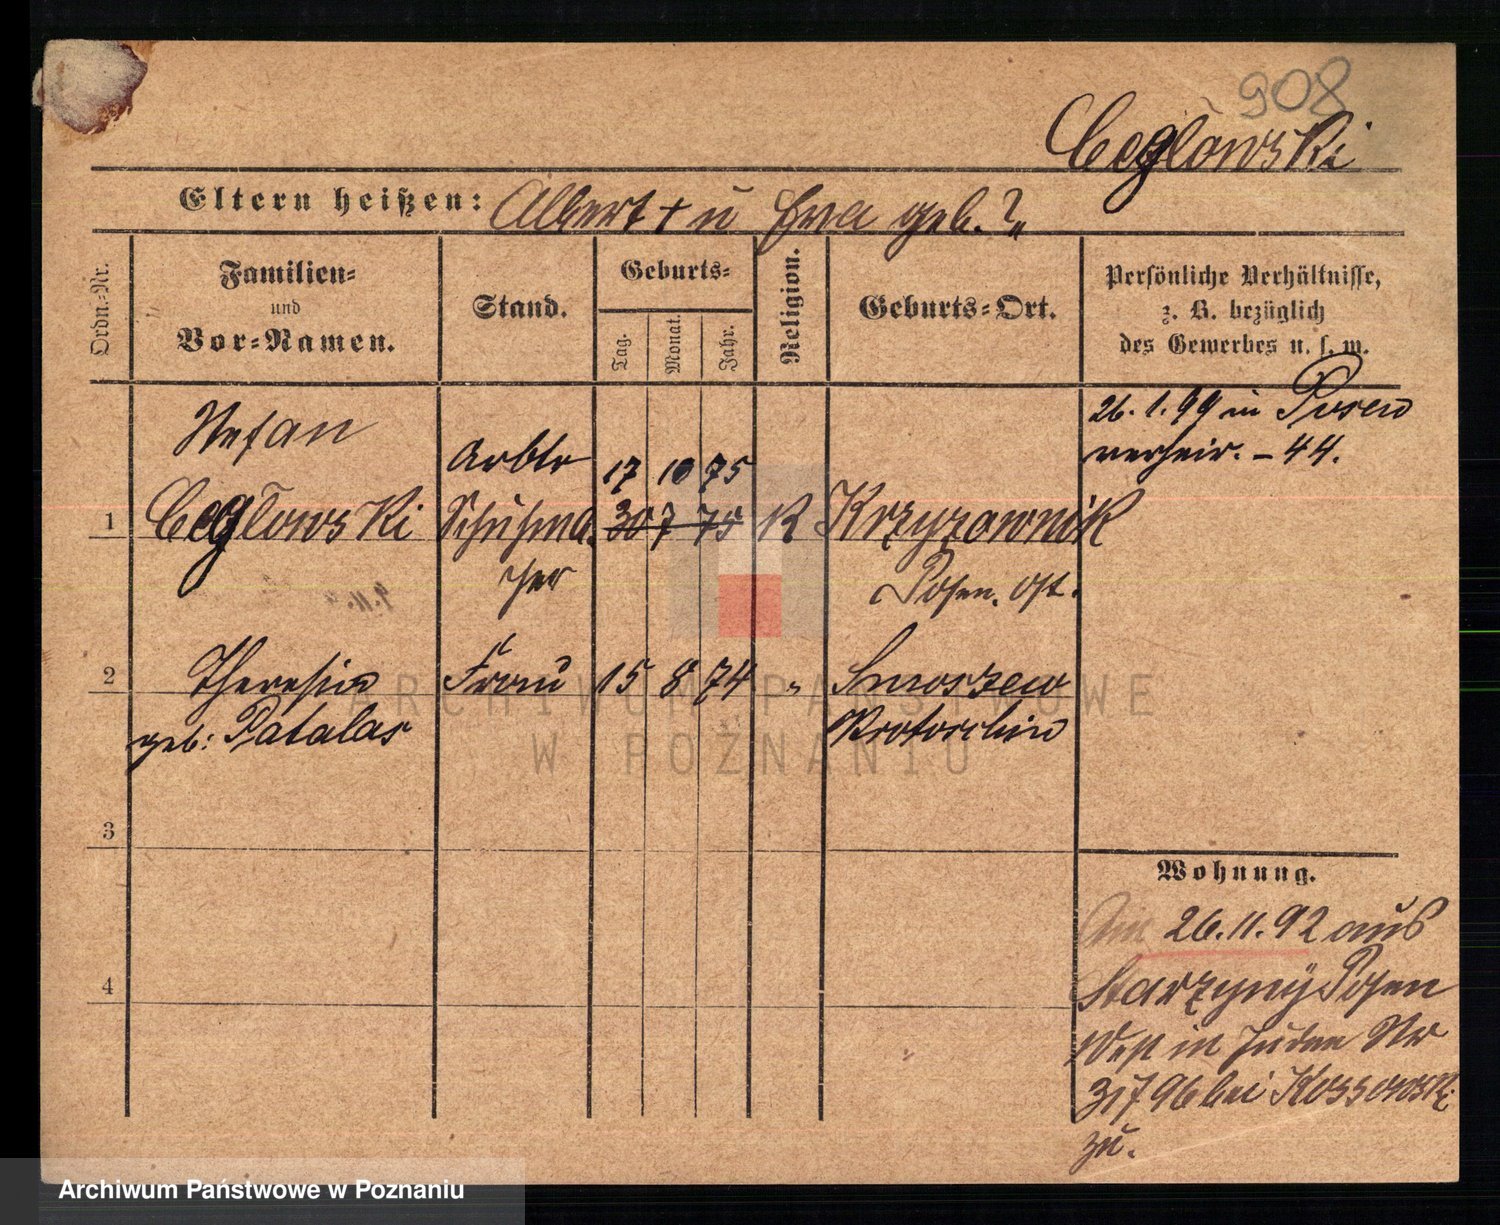 908
Ceglowski
Eltern heißen: Albert + u Eva geb. ?
Ordn.-Nr.
Familien- und Vor-Namen.
Stand.
Geburts-
Tag.
Monat.
Jahr.
Religion.
Geburts-Ort.
Persönliche Verhältnisse,
z. B. bezüglich
des Gewerbes u. s. w.
26. 1. 99 in Posen
verheir. – 44.
Stefan
Arbtr
17 10 75
1 Ceglowski Schuhma 30 7 75 K Krzyzownik
cher
Posen. Ost.
2 Theresia Frau 15 8 74 " Smoszew
geb: Patalas Krotoschin
3
4
Wohnung.
26.11.92 aus
Starzyny Posen
West in Juden Str
bei Kossowski
zu.
ARCHIWUM PAŃSTWOWE
W POZNANIU
Archiwum Państwowe w Poznaniu